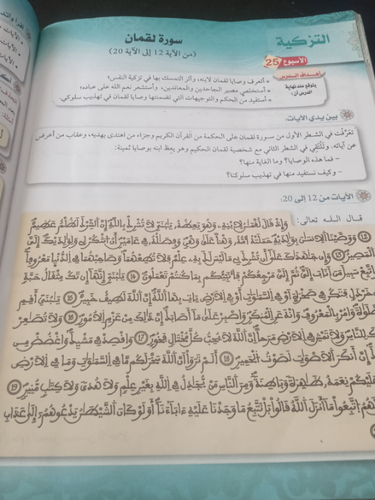 التزكية
سورة لقمان
(من الآية 12 إلى الآية 20)
الأسبوع 25
أهداف الدرس
يتوقع منك نهاية الدرس أن:
أتعرف وصايا لقمان لابنه، وأثر التمسك بها في تزكية النفس؛
أستخلص مصير الجاحدين والمعاندين، وأستشعر نعم الله على عباده؛
أستفيد من الحكم والتوجيهات التي تضمنتها وصايا لقمان في تهذيب سلوكي.
بين يدي الآيات:
تعرفت في الشطر الأول من سورة لقمان على الحكمة من القرآن الكريم وجزاء من اهتدى بهديه، وعقاب من أعرض
عن آياته. وتلتقي في الشطر الثاني مع شخصية لقمان الحكيم وهو يعظ ابنه بوصايا ثمينة:
– فما هذه الوصايا؟ وما الغاية منها؟
– وكيف نستفيد منها في تهذيب سلوكنا؟
الآيات من 12 إلى 20:
قال الله تعالى:
وَإِذْ قَالَ لُقْمَٰنُ لِابْنِهِ وَهُوَ يَعِظُهُ يَٰبُنَيِّ لَا تُشْرِكْ بِاللَّهِ إِنَّ الشِّرْكَ لَظُلْمٌ عَظِيمٌ
وَوَصَّيْنَا الْإِنسَٰنَ بِوَٰلِدَيْهِ حَمَلَتْهُ أُمُّهُ وَهْناً عَلَىٰ وَهْنٍ وَفِصَٰلُهُ فِي عَامَيْنِ أَنِ اشْكُرْ لِي وَلِوَٰلِدَيْكَ إِلَيَّ
الْمَصِيرُ وَإِن جَٰهَدَٰكَ عَلَىٰ أَن تُشْرِكَ بِي مَا لَيْسَ لَكَ بِهِ عِلْمٌ فَلَا تُطِعْهُمَا وَصَاحِبْهُمَا فِي الدُّنْيَا مَعْرُوفاً
وَاتَّبِعْ سَبِيلَ مَنْ أَنَابَ إِلَيَّ ثُمَّ إِلَيَّ مَرْجِعُكُمْ فَأُنَبِّئُكُم بِمَا كُنتُمْ تَعْمَلُونَ يَٰبُنَيِّ إِنَّهَا إِن تَكُ مِثْقَالُ حَبَّةٍ
مِّنْ خَرْدَلٍ فَتَكُن فِي صَخْرَةٍ أَوْ فِي السَّمَٰوَٰتِ أَوْ فِي الْأَرْضِ يَأْتِ بِهَا اللَّهُ إِنَّ اللَّهَ لَطِيفٌ خَبِيرٌ يَٰبُنَيِّ أَقِمِ
الصَّلَوٰةَ وَامُرْ بِالْمَعْرُوفِ وَانْهَ عَنِ الْمُنكَرِ وَاصْبِرْ عَلَىٰ مَا أَصَابَكَ إِنَّ ذَٰلِكَ مِنْ عَزْمِ الْأُمُورِ وَلَا تُصَٰعِرْ
خَدَّكَ لِلنَّاسِ وَلَا تَمْشِ فِي الْأَرْضِ مَرَحاً إِنَّ اللَّهَ لَا يُحِبُّ كُلَّ مُخْتَالٍ فَخُورٍ وَاقْصِدْ فِي مَشْيِكَ وَاغْضُضْ مِن
صَوْتِكَ إِنَّ أَنكَرَ الْأَصْوَٰتِ لَصَوْتُ الْحَمِيرِ أَلَمْ تَرَوْا أَنَّ اللَّهَ سَخَّرَ لَكُم مَّا فِي السَّمَٰوَٰتِ وَمَا فِي الْأَرْضِ
عَلَيْكُمْ نِعَمَهُ ظَٰهِرَةً وَبَاطِنَةً وَمِنَ النَّاسِ مَن يُجَٰدِلُ فِي اللَّهِ بِغَيْرِ عِلْمٍ وَلَا هُدًى وَلَا كِتَٰبٍ مُّنِيرٍ
لَهُمُ اتَّبِعُوا مَا أَنزَلَ اللَّهُ قَالُوا بَلْ نَتَّبِعُ مَا وَجَدْنَا عَلَيْهِ ءَابَاءَنَا أَوَلَوْ كَانَ الشَّيْطَٰنُ يَدْعُوهُمْ إِلَىٰ عَذَابِ